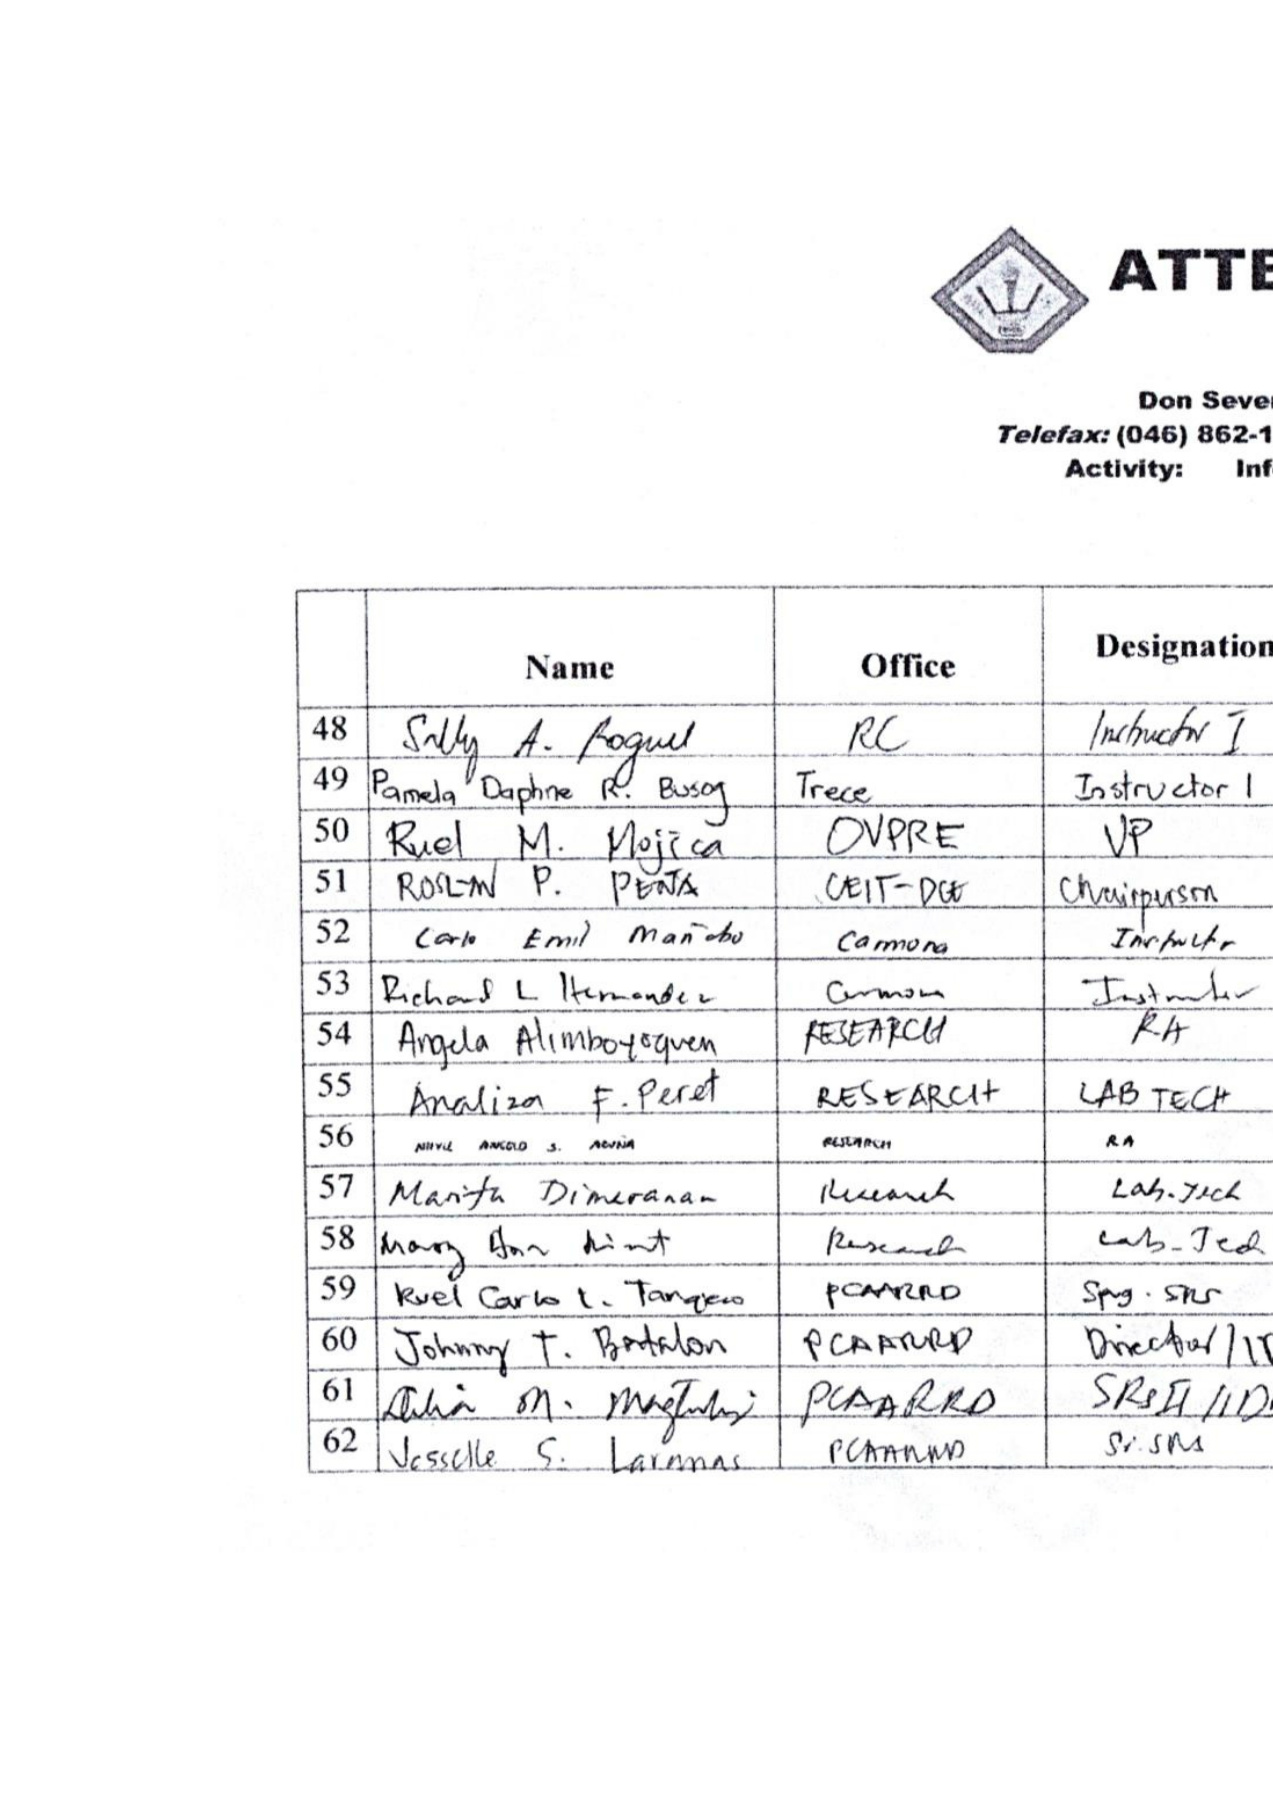 ATTE
Don Seve
Telefax: (046) 862-1
Activity: Inf
Name Office Designation
48 Sally A. Roguel RC Instructor I
49 Pamela Daphne R. Busog Trece Instructor 1
50 Ruel M. Mojica OVPRE VP
51 ROSLYN P. PEÑA CEIT-DCE Chairperson
52 Carlo Emil Mañabo Carmona Instructor
53 Richard L Hernandez Carmona Instructor
54 Angela Alimboyoguen RESEARCH RA
55 Analiza F. Peret RESEARCH LAB TECH
56 ANGELO S. ACUÑA RESEARCH RA
57 Marita Dimeranan Research Lab. Tech
58 Mary Ann Research Lab. Tech
59 Ruel Carlo L. PCAARRD SRS
60 Johnny T. Batalon PCAARRD Director
61 M. PCAARRD SRS II
62 Jesselle S. Laranas PCAARRD Sr. SRS